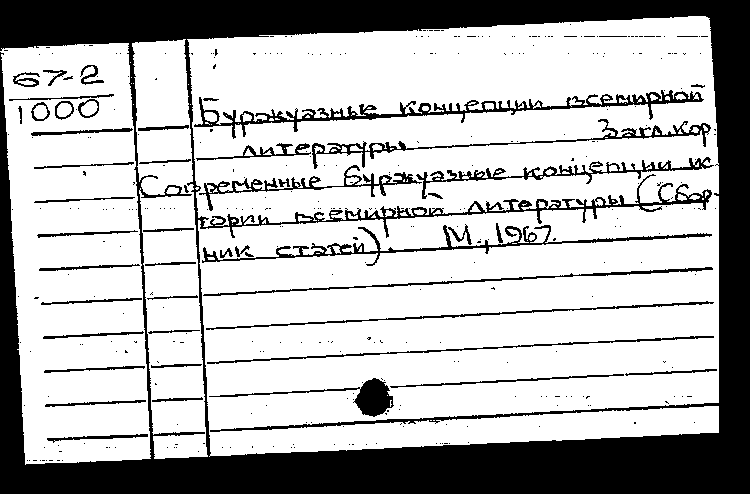 67-2
1000
Буржуазные концепции всемирной
литературы. Загл.кор.
Современные буржуазные концепции ис
тории всемирной литературы (Сбор-
ник статей). М., 1967.